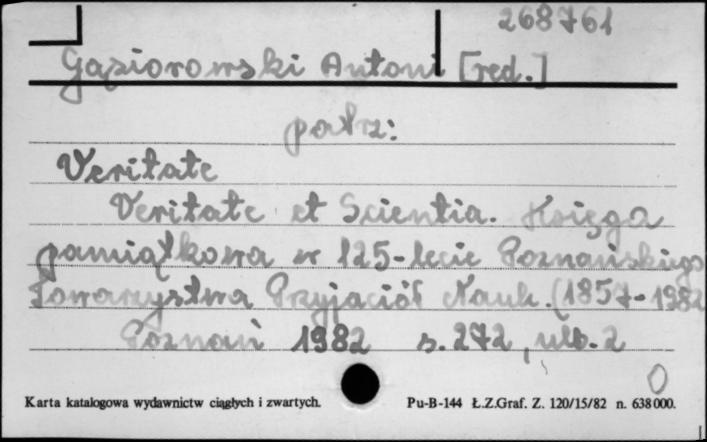 268761
Gąsiorowski Antoni [red.]
patrz:
Veritate
Veritate et Scientia. Księga
pamiątkowa w 125-lecie Poznańskiego
Towarzystwa Przyjaciół Nauk. (1857-1982
Poznań 1982 s. 272, nlb. 2
0
Karta katalogowa wydawnictw ciągłych i zwartych. Pu-B-144 Ł.Z.Graf. Z. 120/15/82 n. 638000.